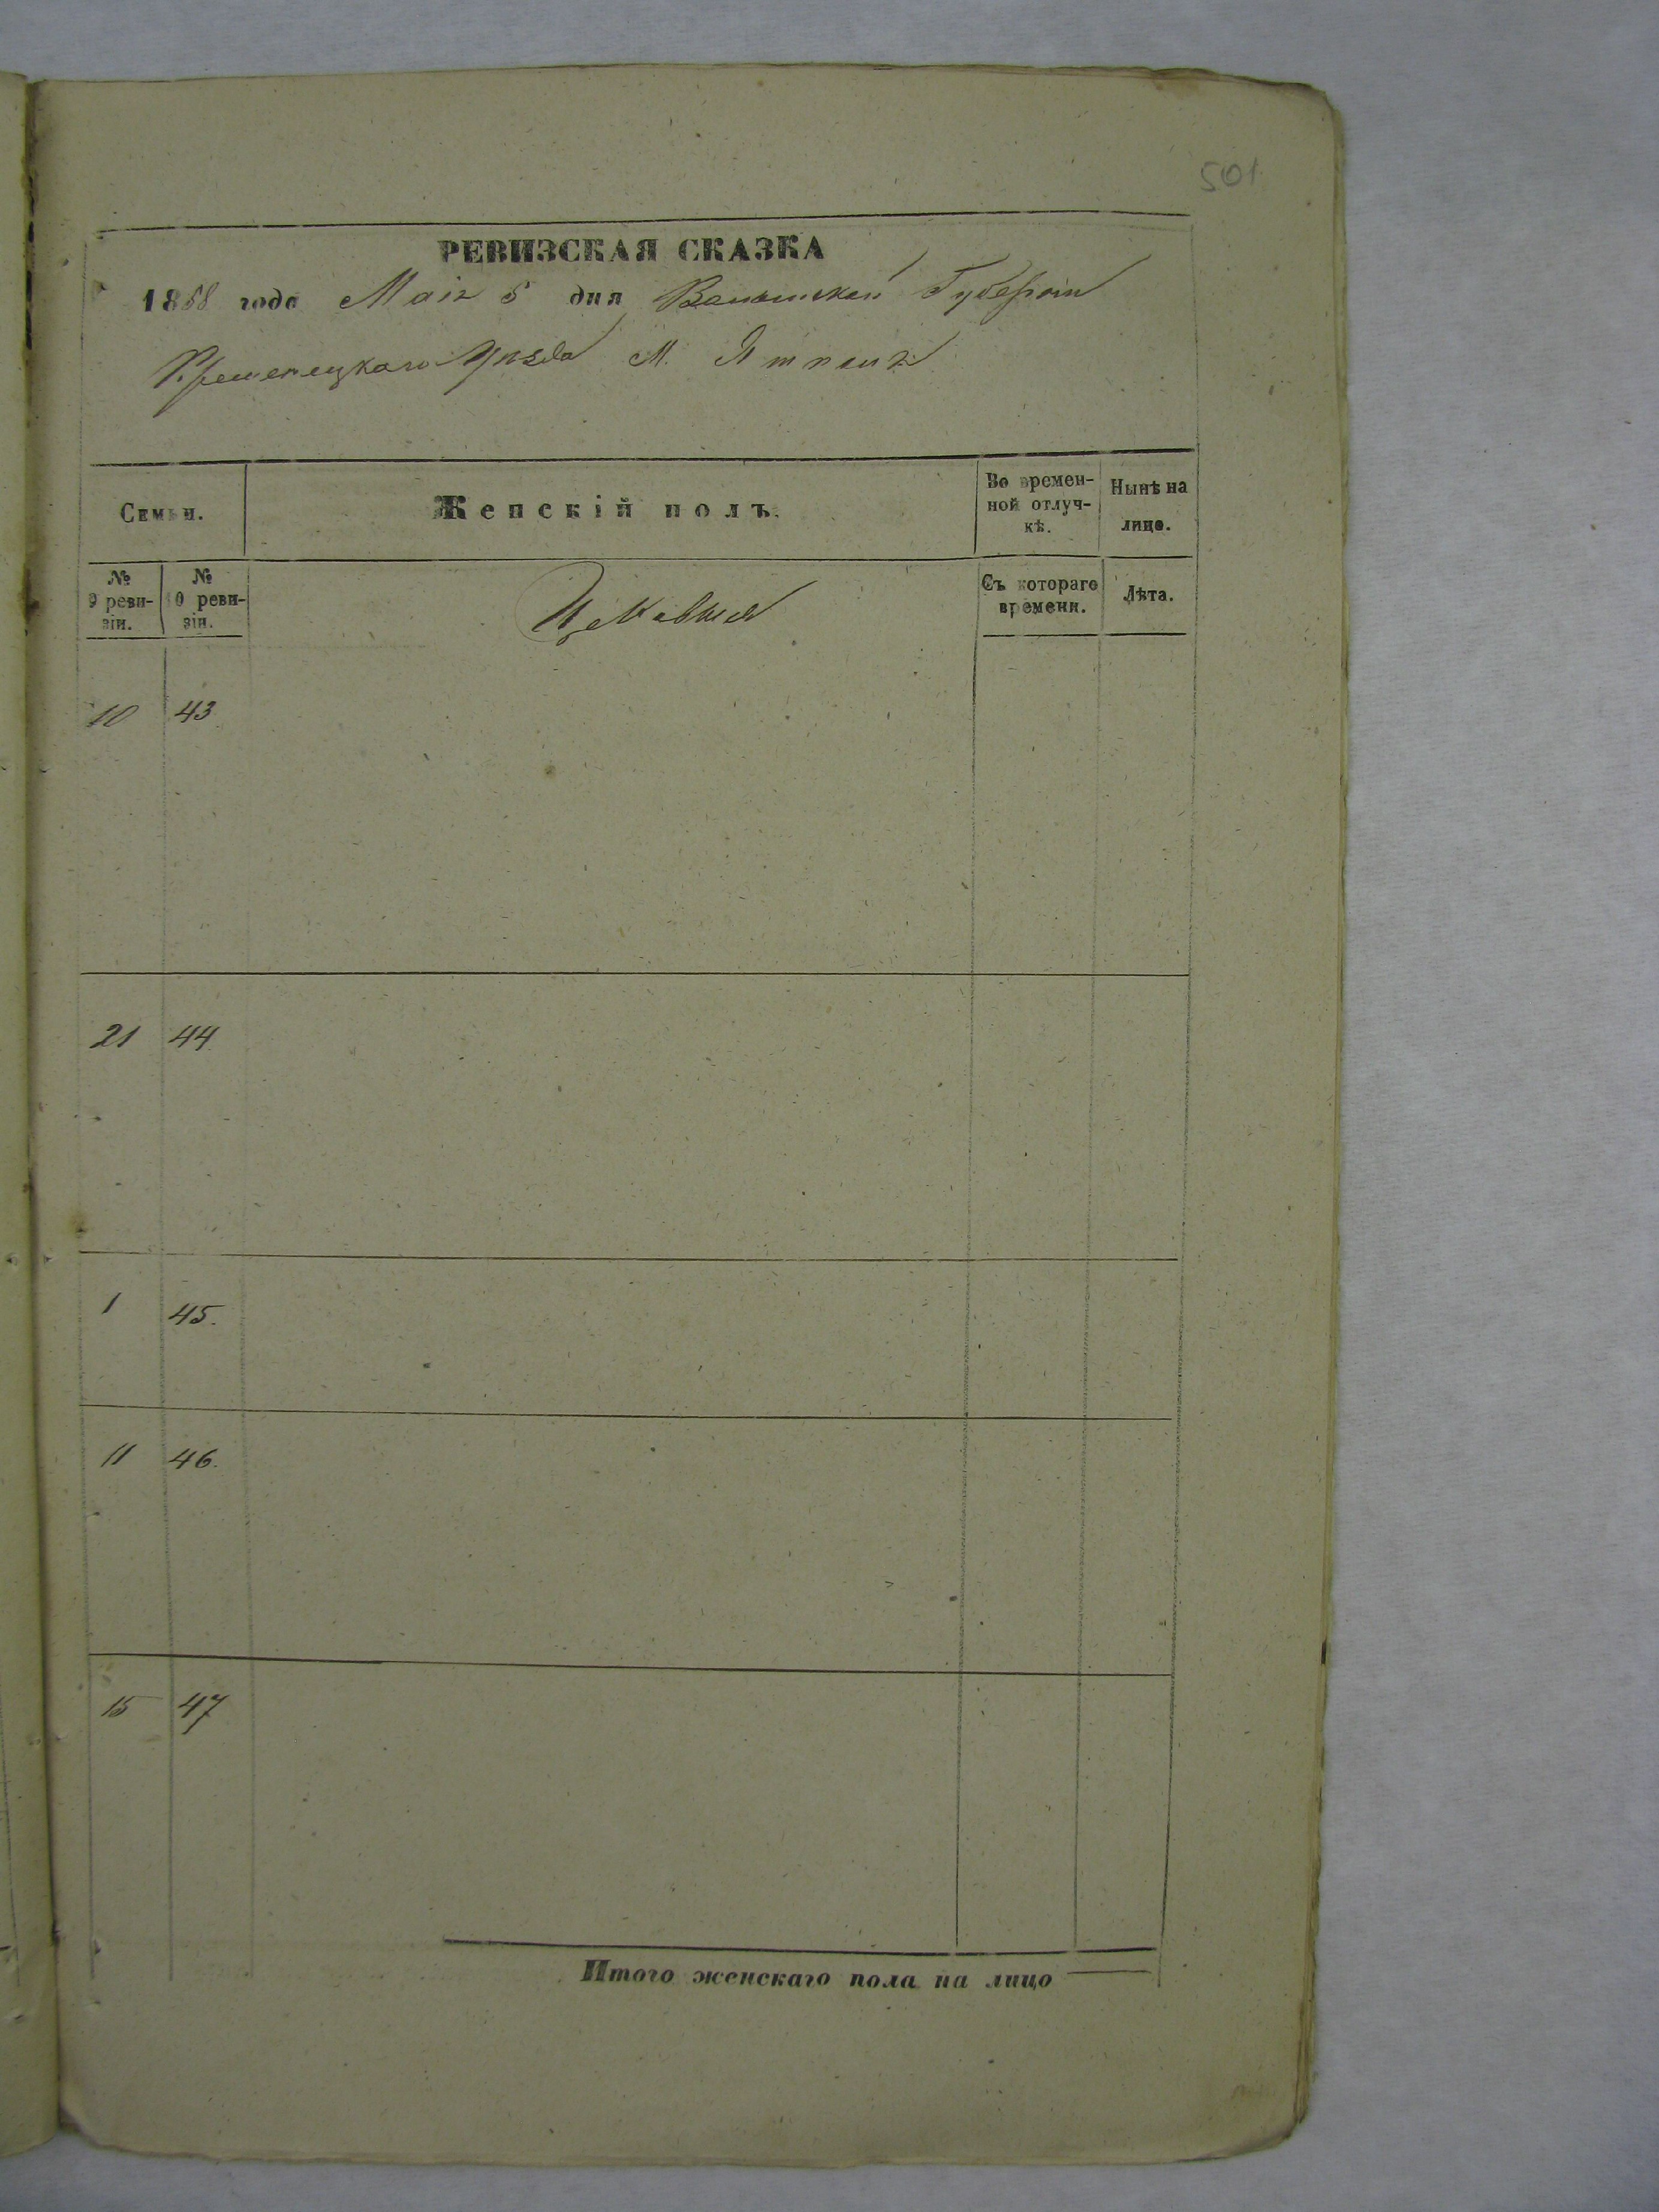 501
РЕВИЗСКАЯ СКАЗКА
1858 года Маія 5 дня Волынской Губерніи
Кременецкаго Уѣзда М. Ямполь
Семьи.
Женскій полъ.
Во времен-
ной отлуч-
кѣ.
Нынѣ на
лицо.
№
9 реви-
зіи.
№
10 реви-
зіи.
Съ котораго
времени.
Лѣта.
10 43
21 44
1 45.
11 46.
15 47
Итого женскаго пола на лицо